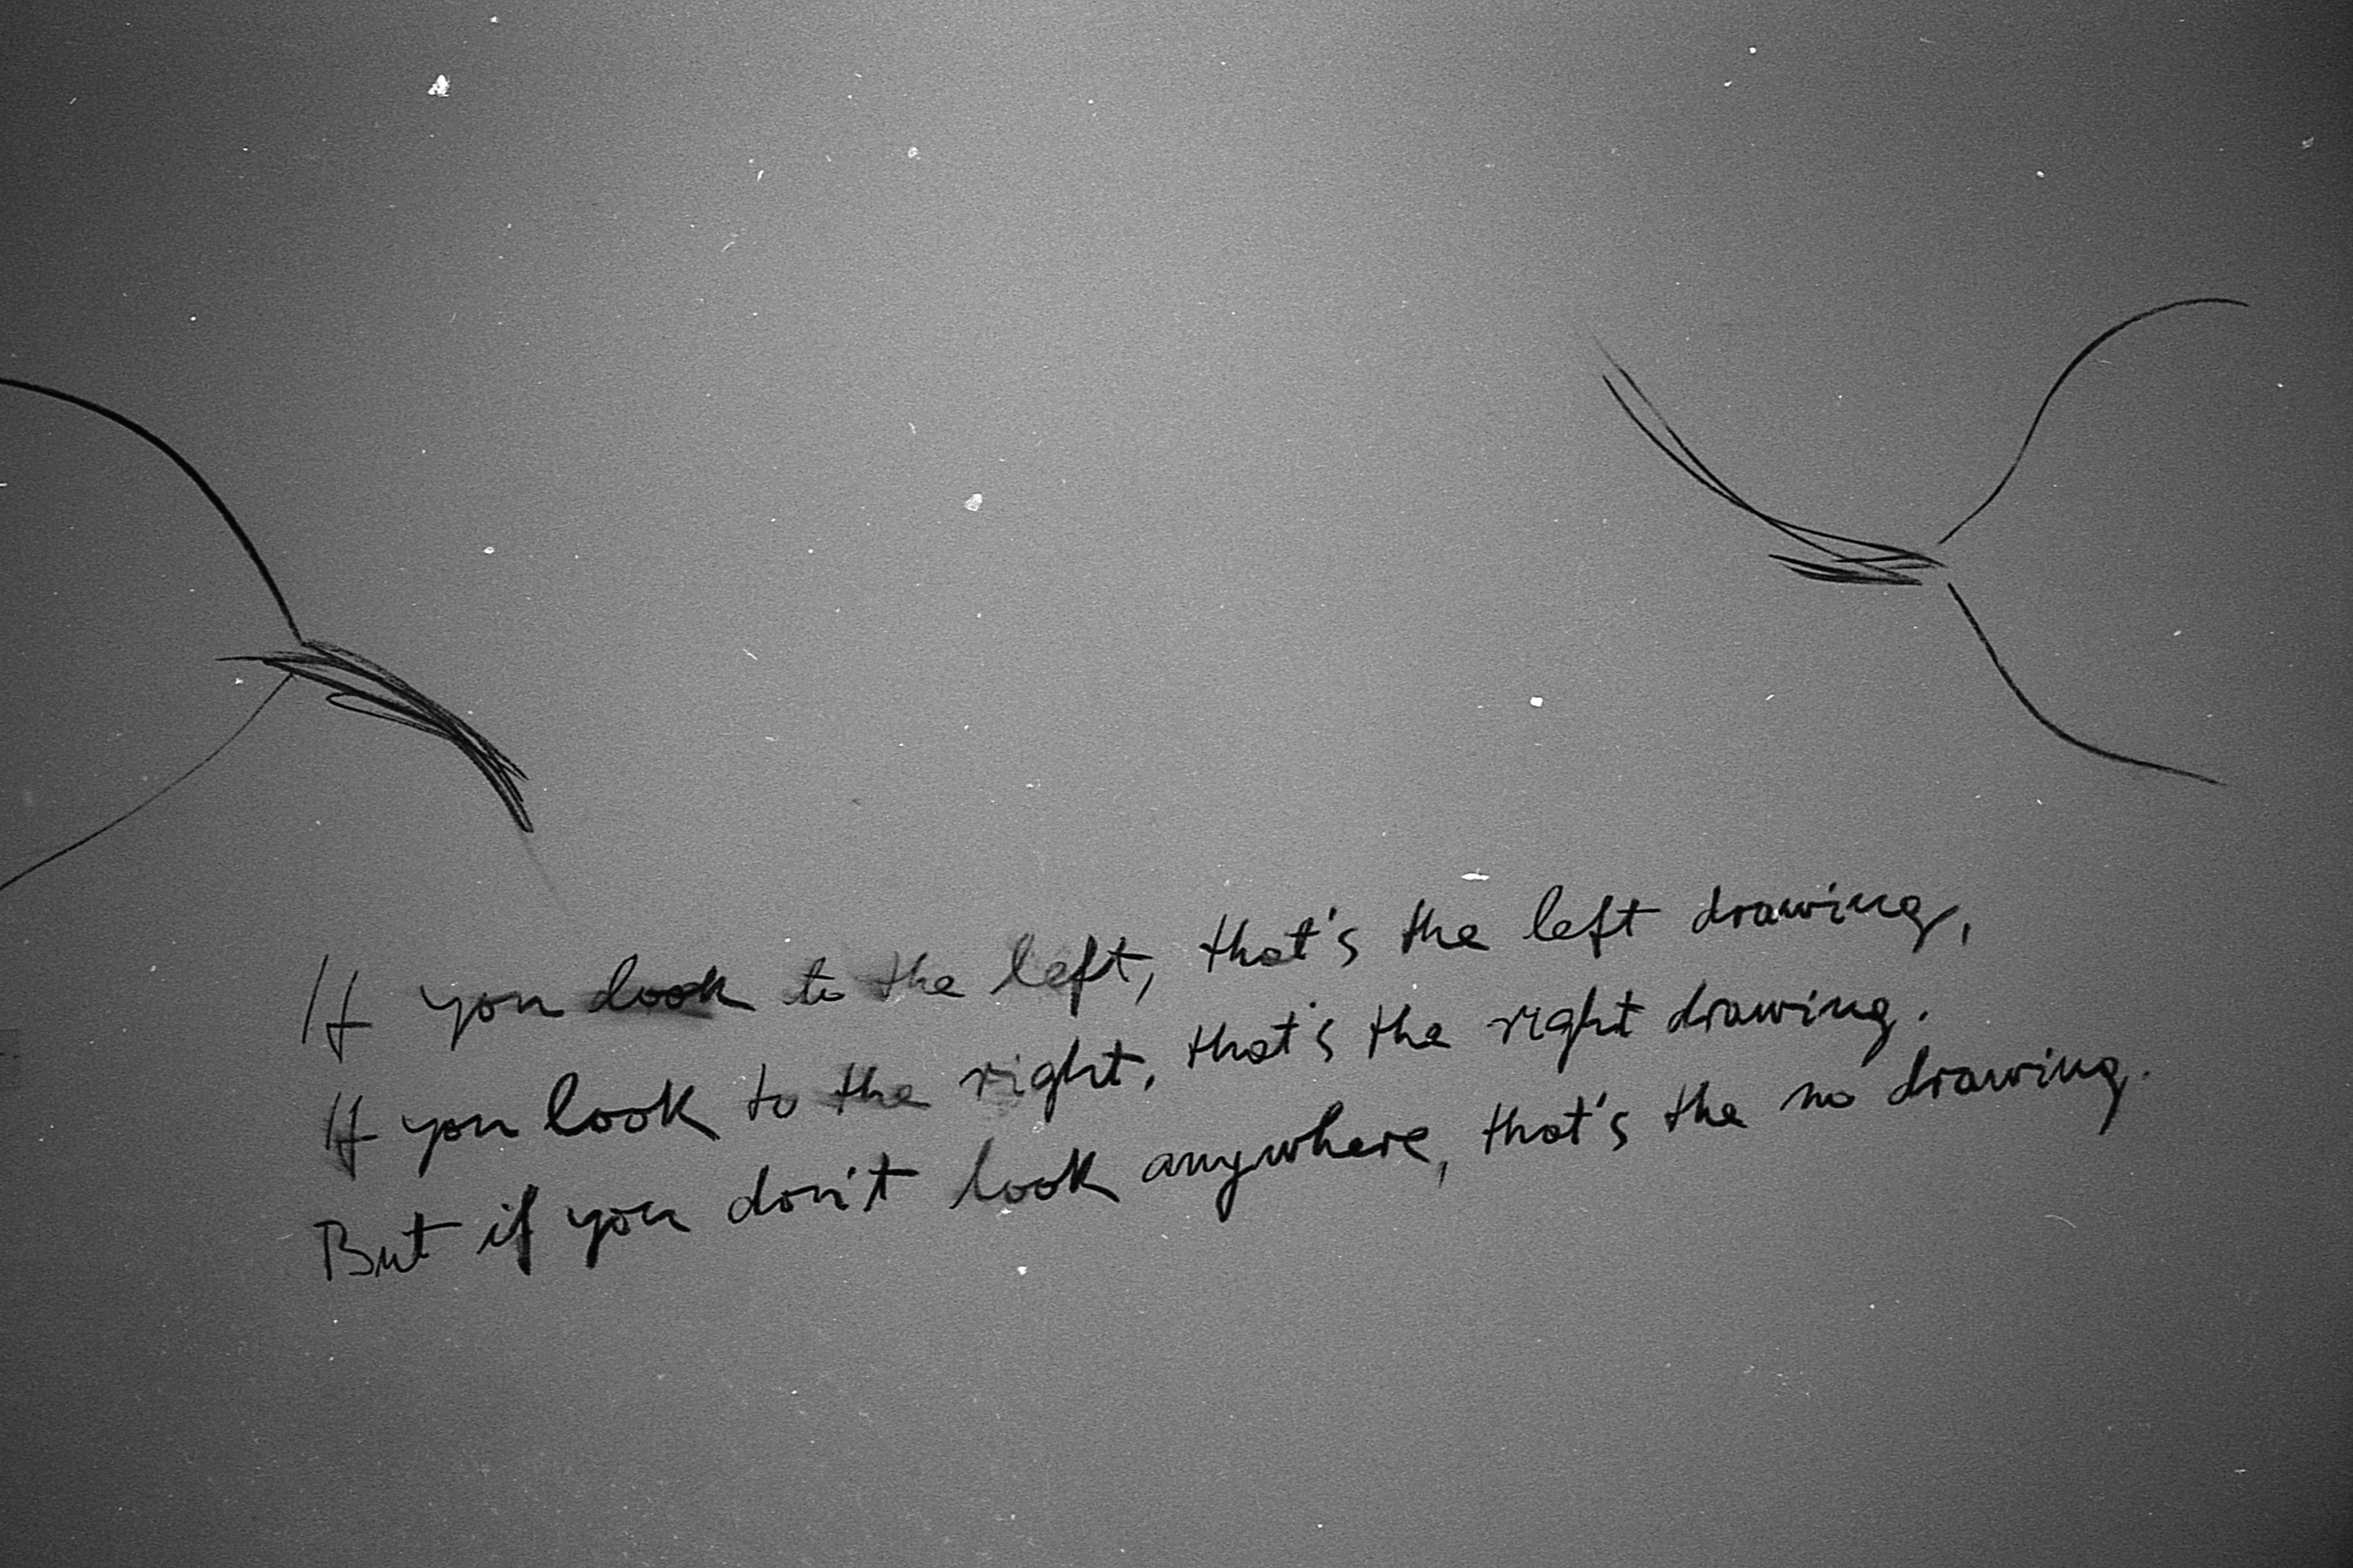 If you look to the left, that's the left drawing,
If you look to the right, that's the right drawing.
But if you don't look anywhere, that's the no drawing.